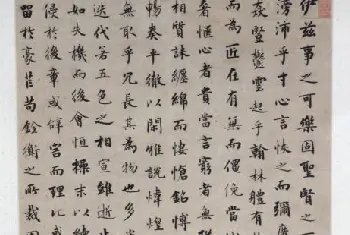 伊茲事之可樂固聖賢之
滂沛乎寸心言恢之而彌
焱豎鬱雲起乎翰林體有
而為匠在有無而僶俛當
奢愜心者貴當言窮者無
相質誄纏綿而悽愴銘博
暢奏平徹以閑雅說煒煌
無取乎冗長其為物也多
迭代若五色之相宣雖逝止
如失機而後會恒操末以
侵於後章或辭害而理比或
留於豪芒苟銓衡之所裁固